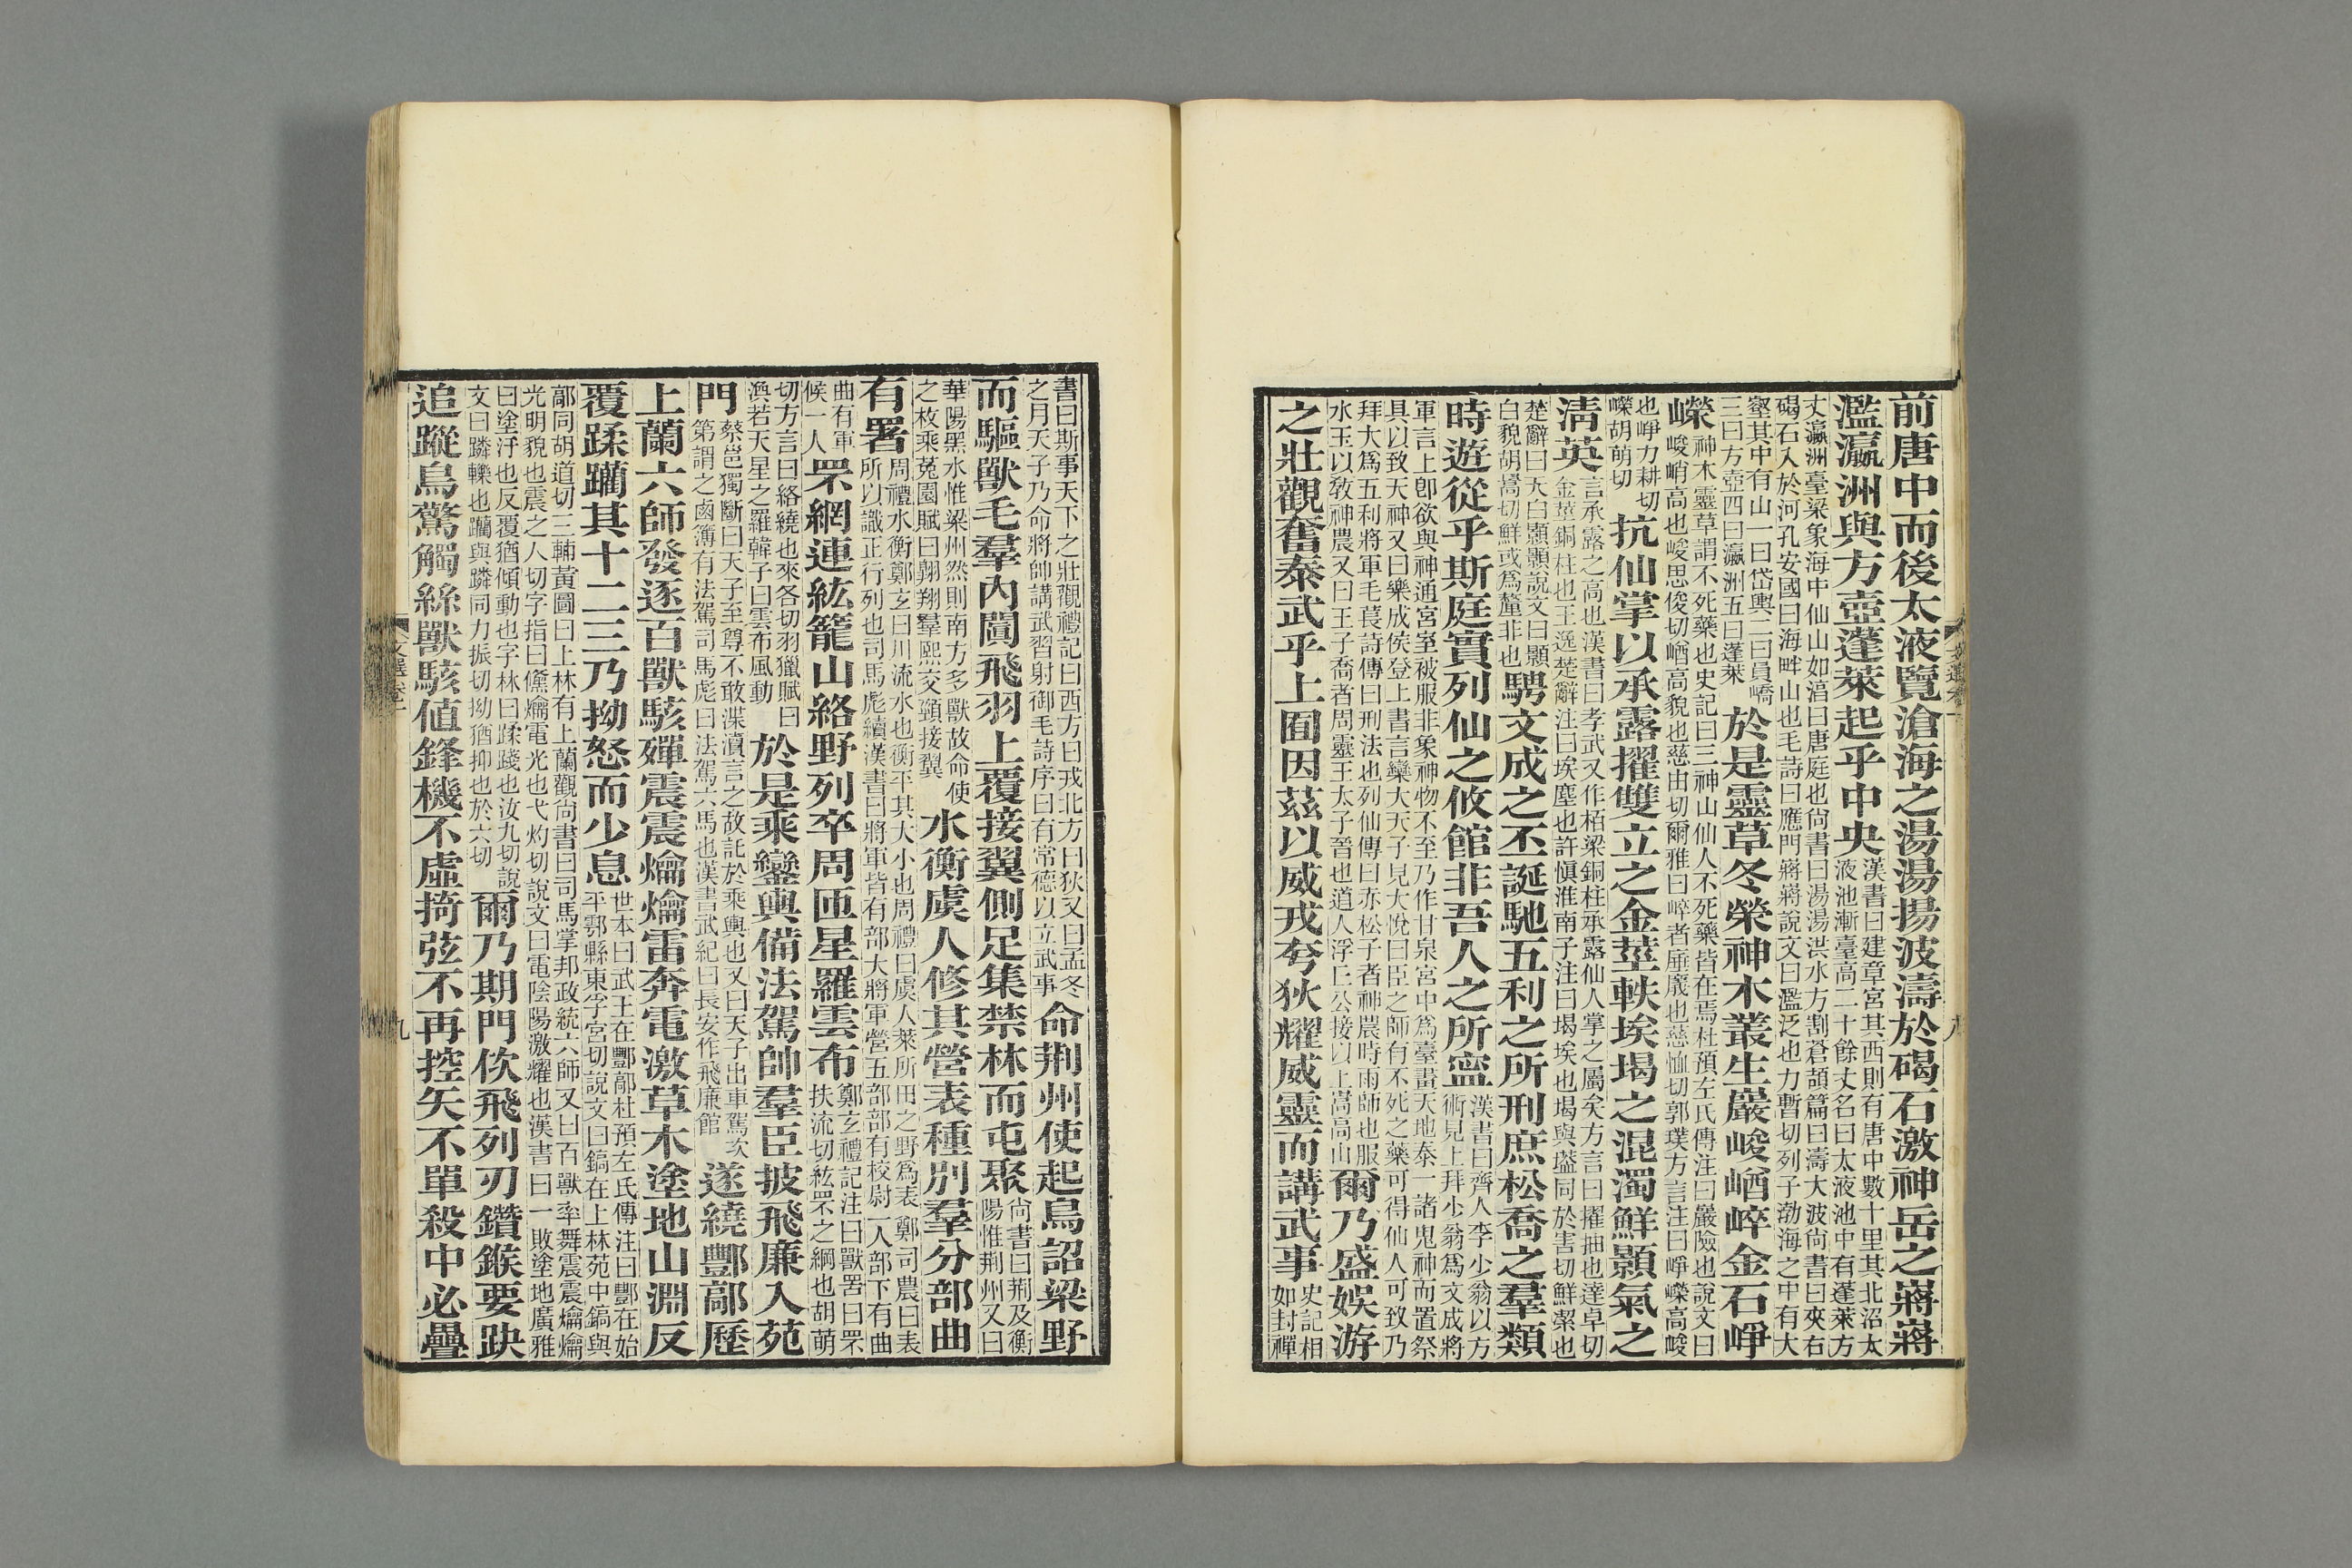 前唐中而後太液覽滄海之湯湯揚波濤於碣石激神岳之嶈嶈
濫瀛洲與方壺蓬萊起乎中央漢書曰建章宮其西則有唐中數十里其北沼太液池漸臺高二十餘丈名曰太液池中有蓬萊方
丈瀛洲臺梁象海中仙山如淳曰唐庭也尚書曰湯湯洪水方割蒼頡篇曰濤大波尚書曰夾右碣石入於河孔安國曰海畔山也毛詩曰應門蔣蔣說文曰濫泛也力暫切列子渤海之中有大
壑其中有山一曰岱輿二曰員嶠三曰方壺四曰瀛洲五曰蓬萊於是靈草冬榮神木叢生巖峻崷崪金石崢
嶸神木靈草謂不死藥也史記曰三神山仙人不死藥皆在焉杜預左氏傳注曰巖險也說文曰峻峭高也峻思俊切崷高貌也慈由切爾雅曰崪者厜㕒也慈恤切郭璞方言注曰崢嶸高峻
也崢力耕切嶸胡萌切抗仙掌以承露擢雙立之金莖軼埃堨之混濁鮮顥氣之
清英言承露之高也漢書曰孝武又作栢梁銅柱承露仙人掌之屬矣方言曰擢抽也達卓切金莖銅柱也王逸楚辭注曰埃塵也許愼淮南子注曰堨埃也堨與壒同於害切鮮絜也
楚辭曰天白顥顥說文曰顥白貌胡暠切鮮或爲釐非也騁文成之丕誕馳五利之所刑庶松喬之羣類
時遊從乎斯庭實列仙之攸館非吾人之所寧漢書曰齊人李少翁以方術見上拜少翁爲文成將
軍言上卽欲與神通宮室被服非象神物不至乃作甘泉宮中爲臺畫天地泰一諸鬼神而置祭具以致天神又曰樂成侯登上書言欒大天子見大悅曰臣之師有不死之藥可得仙人可致乃
拜大爲五利將軍毛萇詩傳曰刑法也列仙傳曰赤松子者神農時雨師也服水玉以敎神農又曰王子喬者周靈王太子晉也道人浮丘公接以上嵩高山爾乃盛娛游
之壯觀奮泰武乎上囿因茲以威戎夸狄耀威靈而講武事史記相如封禪
書曰斯事天下之壯觀禮記曰西方曰戎北方曰狄又曰孟冬之月天子乃命將帥講武習射御毛詩序曰有常德以立武事命荆州使起鳥詔梁野
而驅獸毛羣內闐飛羽上覆接翼側足集禁林而屯聚尚書曰荆及衡陽惟荆州又曰
華陽黑水惟梁州然則南方多獸故命使之枚乘菟園賦曰翱翔羣熙交頸接翼水衡虞人修其營表種別羣分部曲
有署周禮水衡鄭玄曰川流水也衡平其大小也周禮曰虞人萊所田之野爲表鄭司農曰表所以識正行列也司馬彪續漢書曰將軍皆有部大將軍營五部部有校尉一人部下有曲
曲有軍候一人罘網連紘籠山絡野列卒周匝星羅雲布鄭玄禮記注曰獸罟曰罘扶流切紘罘之綱也胡萌
切方言曰絡繞也來各切羽獵賦曰渙若天星之羅韓子曰雲布風動於是乘鑾輿備法駕帥羣臣披飛廉入苑
門蔡邕獨斷曰天子至尊不敢渫瀆言之故託於乘輿也又曰天子出車駕次第謂之鹵簿有法駕司馬彪曰法駕六馬也漢書武紀曰長安作飛廉館遂繞酆鄗歷
上蘭六師發逐百獸駭殫震震爚爚雷奔電激草木塗地山淵反
覆蹂躪其十二三乃拗怒而少息世本曰武王在酆鄗杜預左氏傳注曰酆在始平鄠縣東孚宮切說文曰鎬在上林苑中鎬與
鄗同胡道切三輔黃圖曰上林有上蘭觀尚書曰司馬掌邦政統六師又曰百獸率舞震震爚爚光明貌也震之人切字指曰儵爚電光也弋灼切說文曰電陰陽激耀也漢書曰一敗塗地廣雅
曰塗汙也反覆猶傾動也字林曰蹂踐也汝九切說文曰蹸轢也躪與蹸同力振切拗猶抑也於六切爾乃期門佽飛列刃鑽鍭要趹
追蹤鳥驚觸絲獸駭值鋒機不虛掎弦不再控矢不單殺中必疊
文選卷一
九